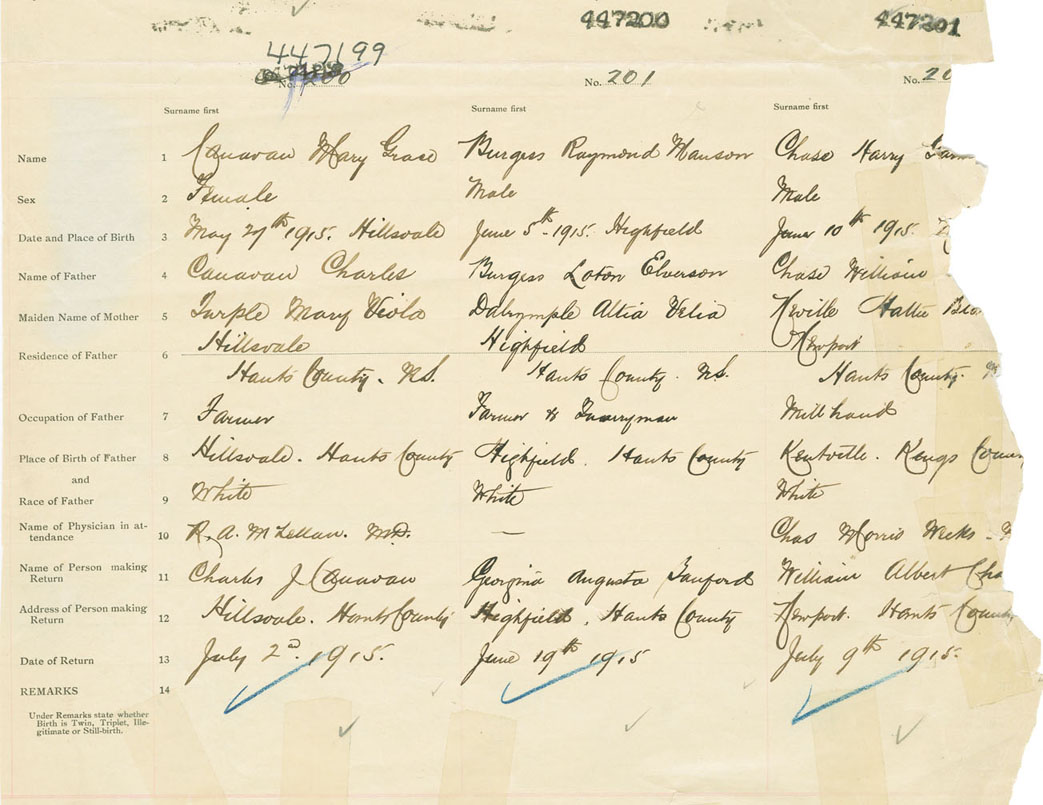 447200 447201
447199
No. 200 No. 201 No. 20
Surname first Surname first Surname first
Name 1 Canavan Mary Grace Burgess Raymond Manson Chase Harry
Sex 2 Female Male Male
Date and Place of Birth 3 May 27th 1915. Hillsvale June 5th 1915. Highfield June 10th 1915.
Name of Father 4 Canavan Charles Burgess Loton Elverson Chase William
Maiden Name of Mother 5 Turple Mary Viola Dalrymple Altia Velia Neville Hattie
Hillsvale Highfield Newport
Residence of Father 6
Hants County. N.S. Hants County. N.S. Hants County.
Occupation of Father 7 Farmer Farmer & Millhand
Place of Birth of Father 8 Hillsvale. Hants County Highfield. Hants County Kentville. Kings Coun
and
Race of Father 9 White White White
Name of Physician in at-
tendance 10 R. A. McLellan. M.D. — Chas Morris Weeks -
Name of Person making
Return 11 Charles J Canavan Georgina Augusta Sanford William Albert Cha
Address of Person making
Return 12 Hillsvale. Hants County Highfield, Hants County Newport. Hants County
Date of Return 13 July 2d. 1915. June 19th 1915 July 9th 1915.
REMARKS 14
Under Remarks state whether
Birth is Twin, Triplet, Ille-
gitimate or Still-birth.